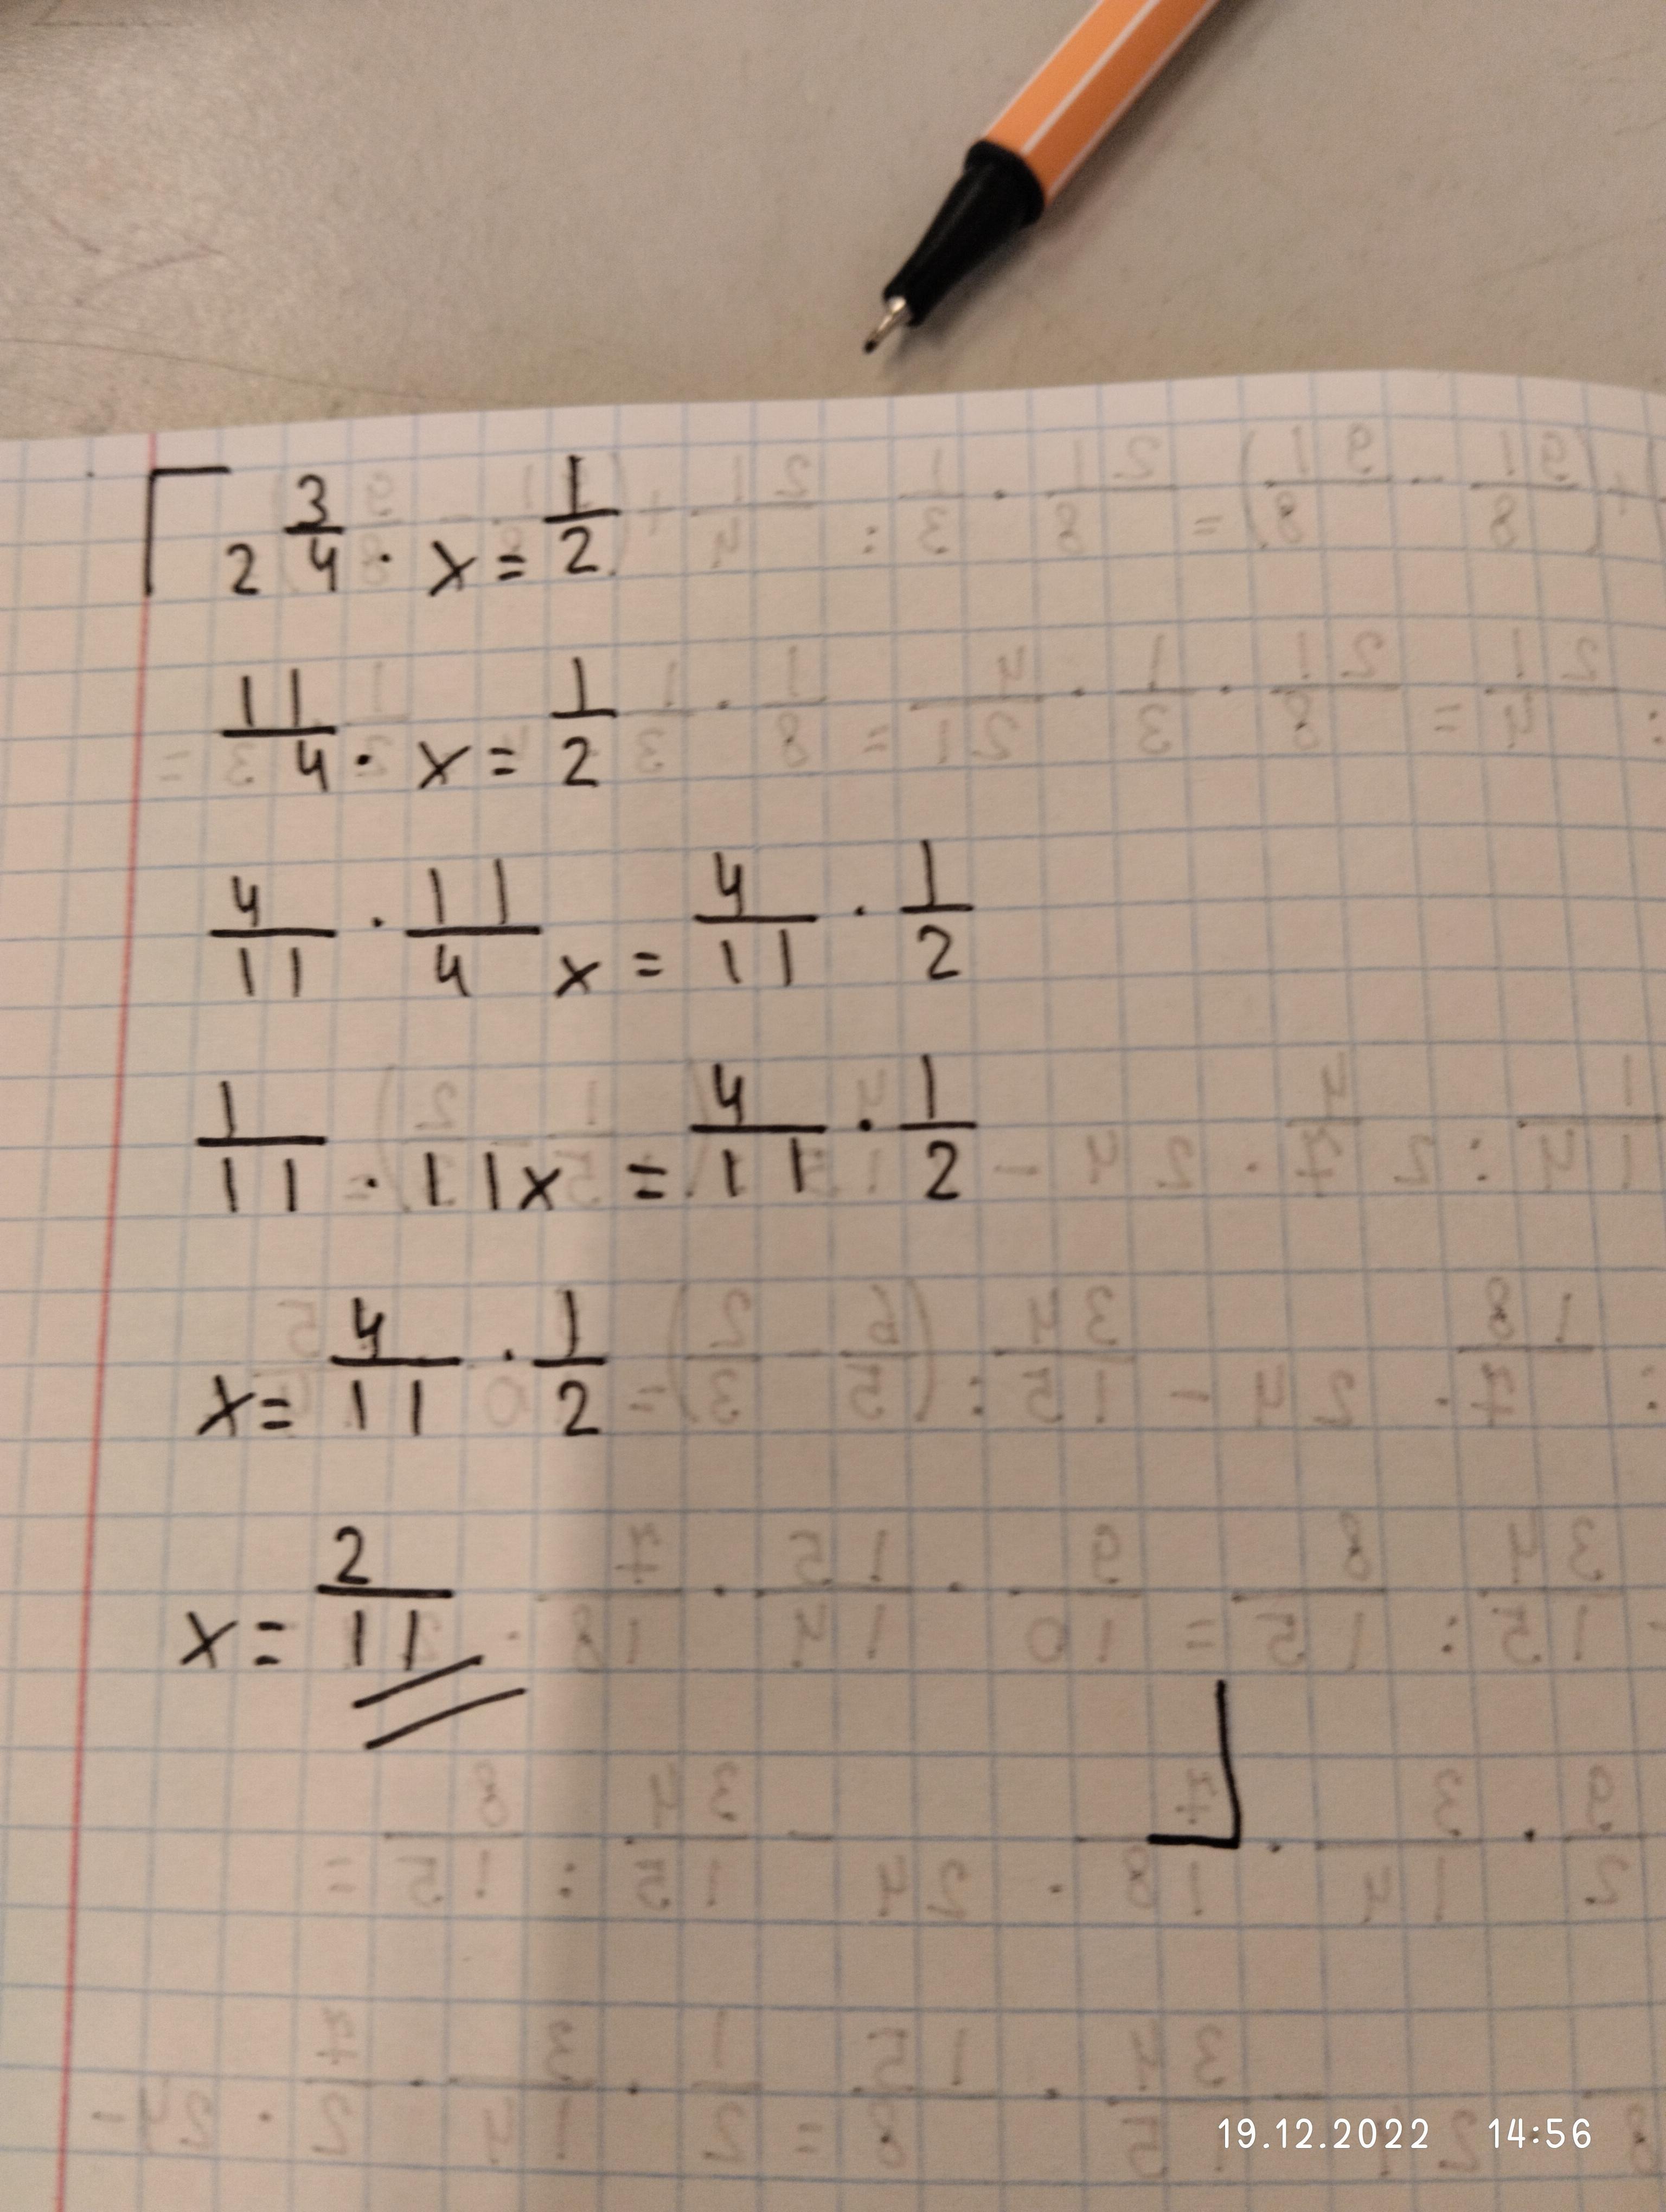 2 3/4 · x = 1/2
11/4 · x = 1/2
4/11 · 11/4 x = 4/11 · 1/2
1/11 · 11x = 4/11 · 1/2
x = 4/11 · 1/2
x = 2/11
19.12.2022 14:56